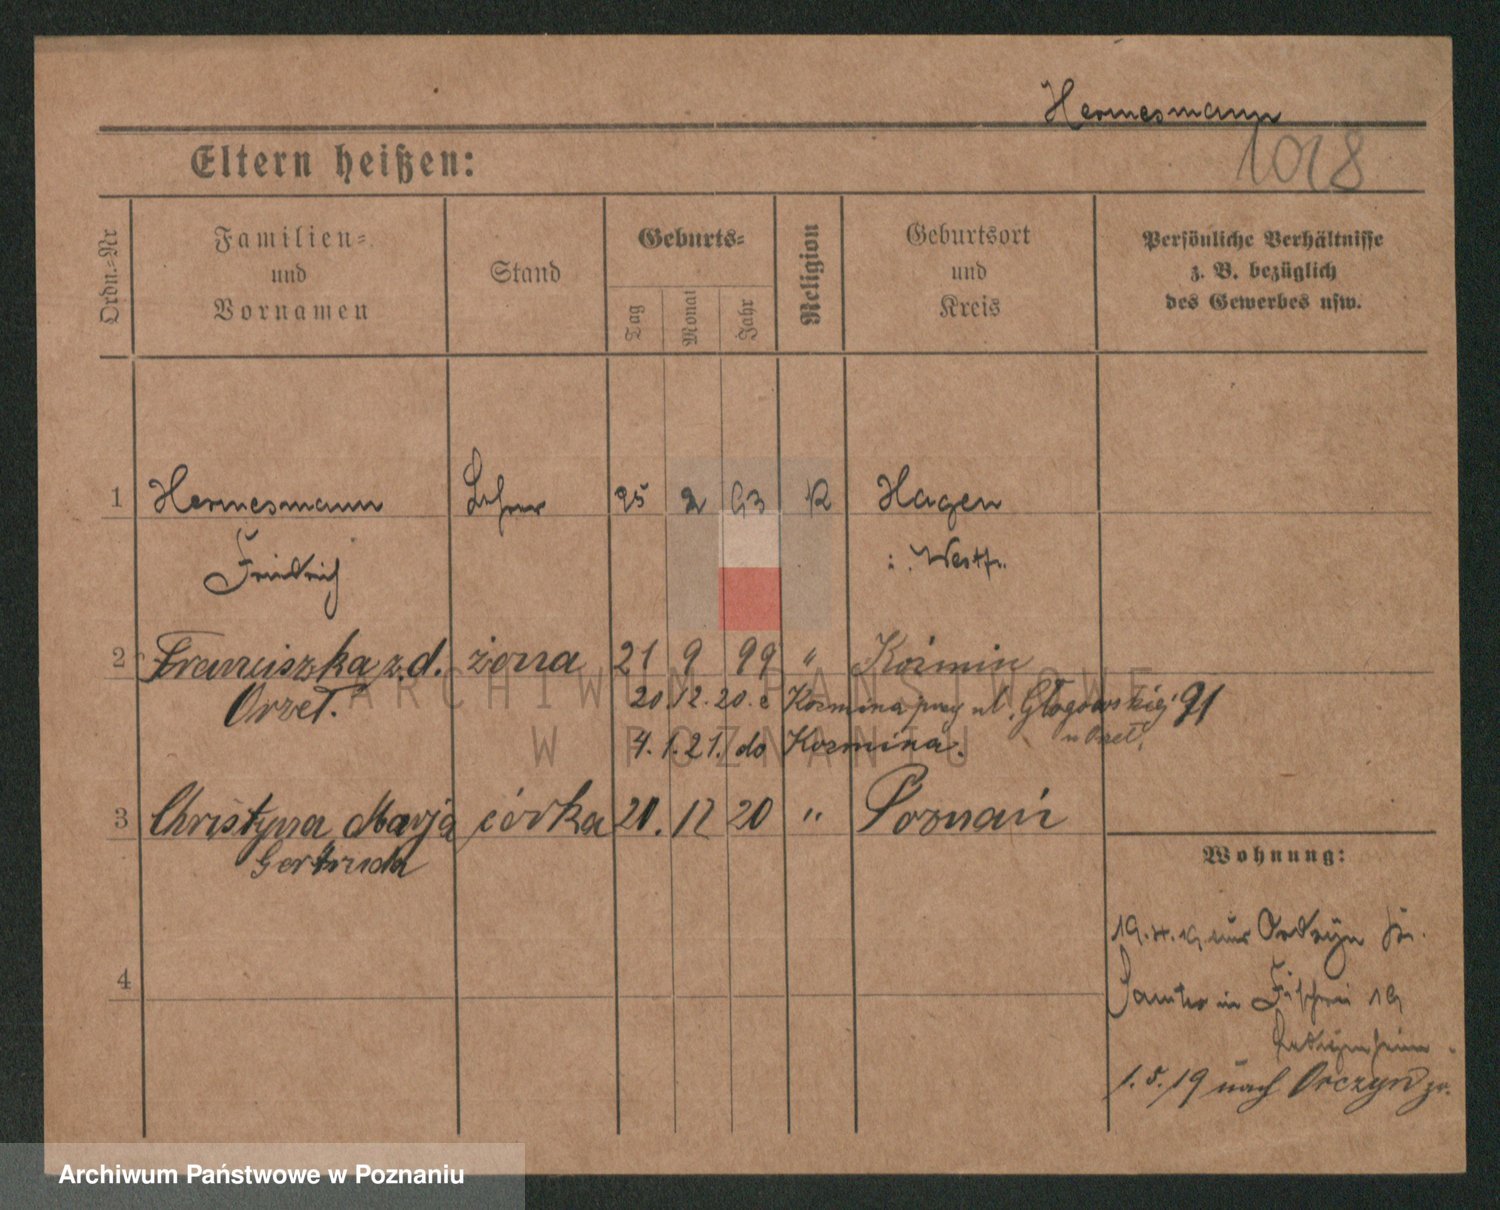 Hermesmann
1018
Eltern heißen:
Ordn.-Nr
Familien-
und
Vornamen
Stand
Geburts-
Tag
Monat
Jahr
Religion
Geburtsort
und
Kreis
Persönliche Verhältnisse
z. B. bezüglich
des Gewerbes usw.
1 Hermesmann Lehrer 25 2 93 K Hagen
Friedrich i. Westf.
2 Franciszka z. d. żona 21 9 99 " Koźmin
Orzeł. 20.12.20. z Koźmina przy ul. Głogowskiej 91
u Orzeł,
4.1.21. do Koźmina.
3 Christyna Marja córka 21. 12 20 " Poznań
Gertruda
Wohnung:
19.4.19 aus
4
in Fischerei 19
Ledigenheim
1.5.19 nach Orczyn
ARCHIWUM PAŃSTWOWE
W POZNANIU
Archiwum Państwowe w Poznaniu